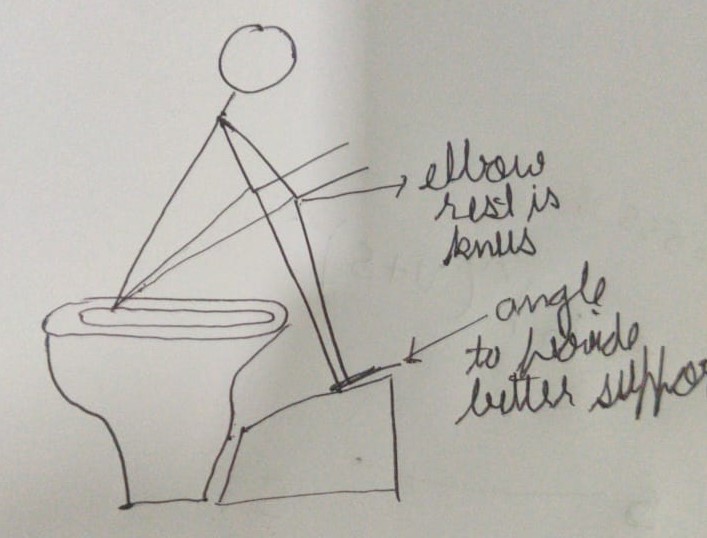 elbow
rest is
knus
angle
to provide
better suppo